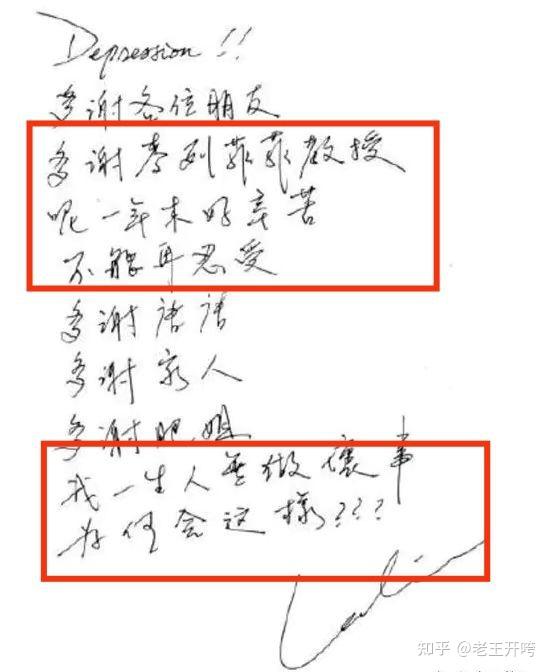 Depression !!
多谢各位朋友
多谢李列菲菲教授
呢一年来好辛苦
不能再忍受
多谢唐唐
多谢家人
多谢肥姐
我一生人無做壞事
为何会这樣???
知乎 @老王开咵